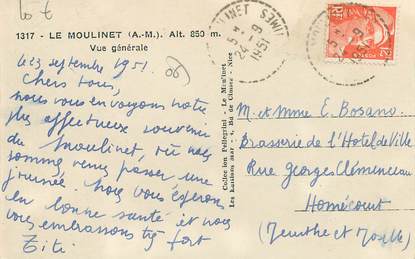 1317 - LE MOULINET (A.-M.). Alt. 850 m.
Vue générale
le 23 septembre 1951.
Chers tous,
nous vous envoyons notre
plus affectueux souvenir
du Moulinet, où nous
somme venus passer une
journée. Nous vous espérons
en bonne santé et nous
vous embrassons très fort
Titi
Collection Pellegrini - Le Moulinet
24 -9
1951
M. et Mme E. Bosano
Brasserie de l'Hotel de Ville
Rue Georges Clémenceau
Homécourt
(Meurthe et Moselle)